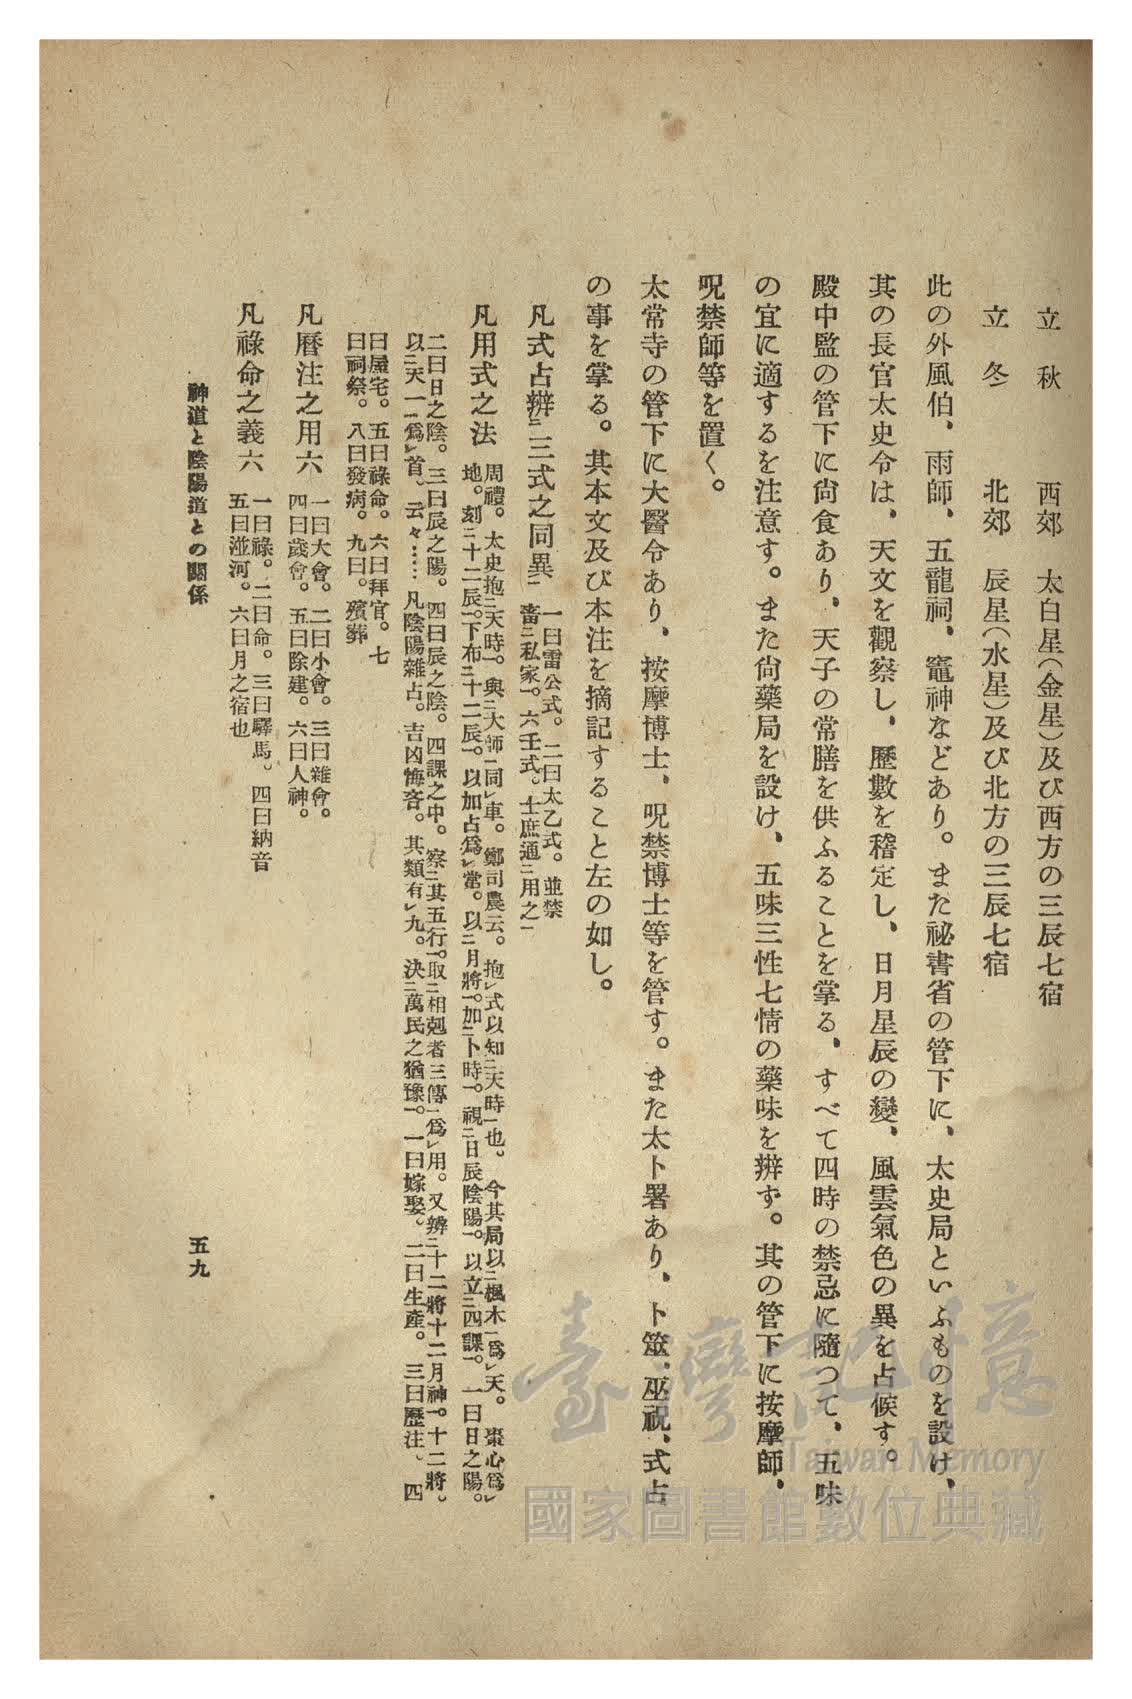 立秋　西郊　太白星（金星）及び西方の三辰七宿
立冬　北郊　辰星（水星）及び北方の三辰七宿
此の外風伯、雨師、五龍祠、竈神などあり。また祕書省の管下に、太史局といふものを設け、
其の長官太史令は、天文を觀察し、歷數を稽定し、日月星辰の變、風雲氣色の異を占候す。
殿中監の管下に尙食あり、天子の常膳を供ふることを掌る、すべて四時の禁忌に隨つて、五味
の宜に適するを注意す。また尙藥局を設け、五味三性七情の藥味を辨ず。其の管下に按摩師、
呪禁師等を置く。
太常寺の管下に大醫令あり、按摩博士、呪禁博士等を管す。また太卜署あり、卜筮、巫祝、式占
の事を掌る。其本文及び本注を摘記すること左の如し。
凡式占辨㆓三式之同異㆒
一曰雷公式。二曰太乙式。並禁
畜㆓私家㆒。六壬式。士庶通㆓用之㆒
凡用式之法
周禮。太史抱㆓天時㆒。與㆓大師㆒同㆑車。鄭司農云。抱㆑式以知㆓天時㆒也。今其局以㆓楓木㆒爲㆑天。棗心爲㆑
地。刻㆓十二辰㆒。下布㆓十二辰㆒。以加占爲㆑當。以㆓月將㆒。加㆓卜時㆒。視㆓日辰陰陽㆒。以立㆓四課㆒。一曰日之陽。
二曰日之陰。三曰辰之陽。四曰辰之陰。四課之中。察㆓其五行㆒。取㆓相剋者三傳㆒爲㆑用。又辨㆓十二將十二月神㆒。十二將。
以㆓天一㆒爲㆑首、云々……凡陰陽雜占。吉凶悔吝。其類有㆑九。決㆓萬民之猶豫㆒。一曰嫁娶。二曰生產。三曰歷注、四
曰屋宅。五曰祿命。六曰拜官。七
曰祠祭。八曰發病。九曰。殯葬
凡曆注之用六
一曰大會。二曰小會。三曰雜會。
四曰歲會。五曰除建。六曰人神。
凡祿命之義六
一曰祿。二曰命。三曰驛馬。四曰納音
五曰湴河。六曰月之宿也
神道と陰陽道との關係
五九
臺灣記憶
Taiwan Memory
國家圖書館數位典藏